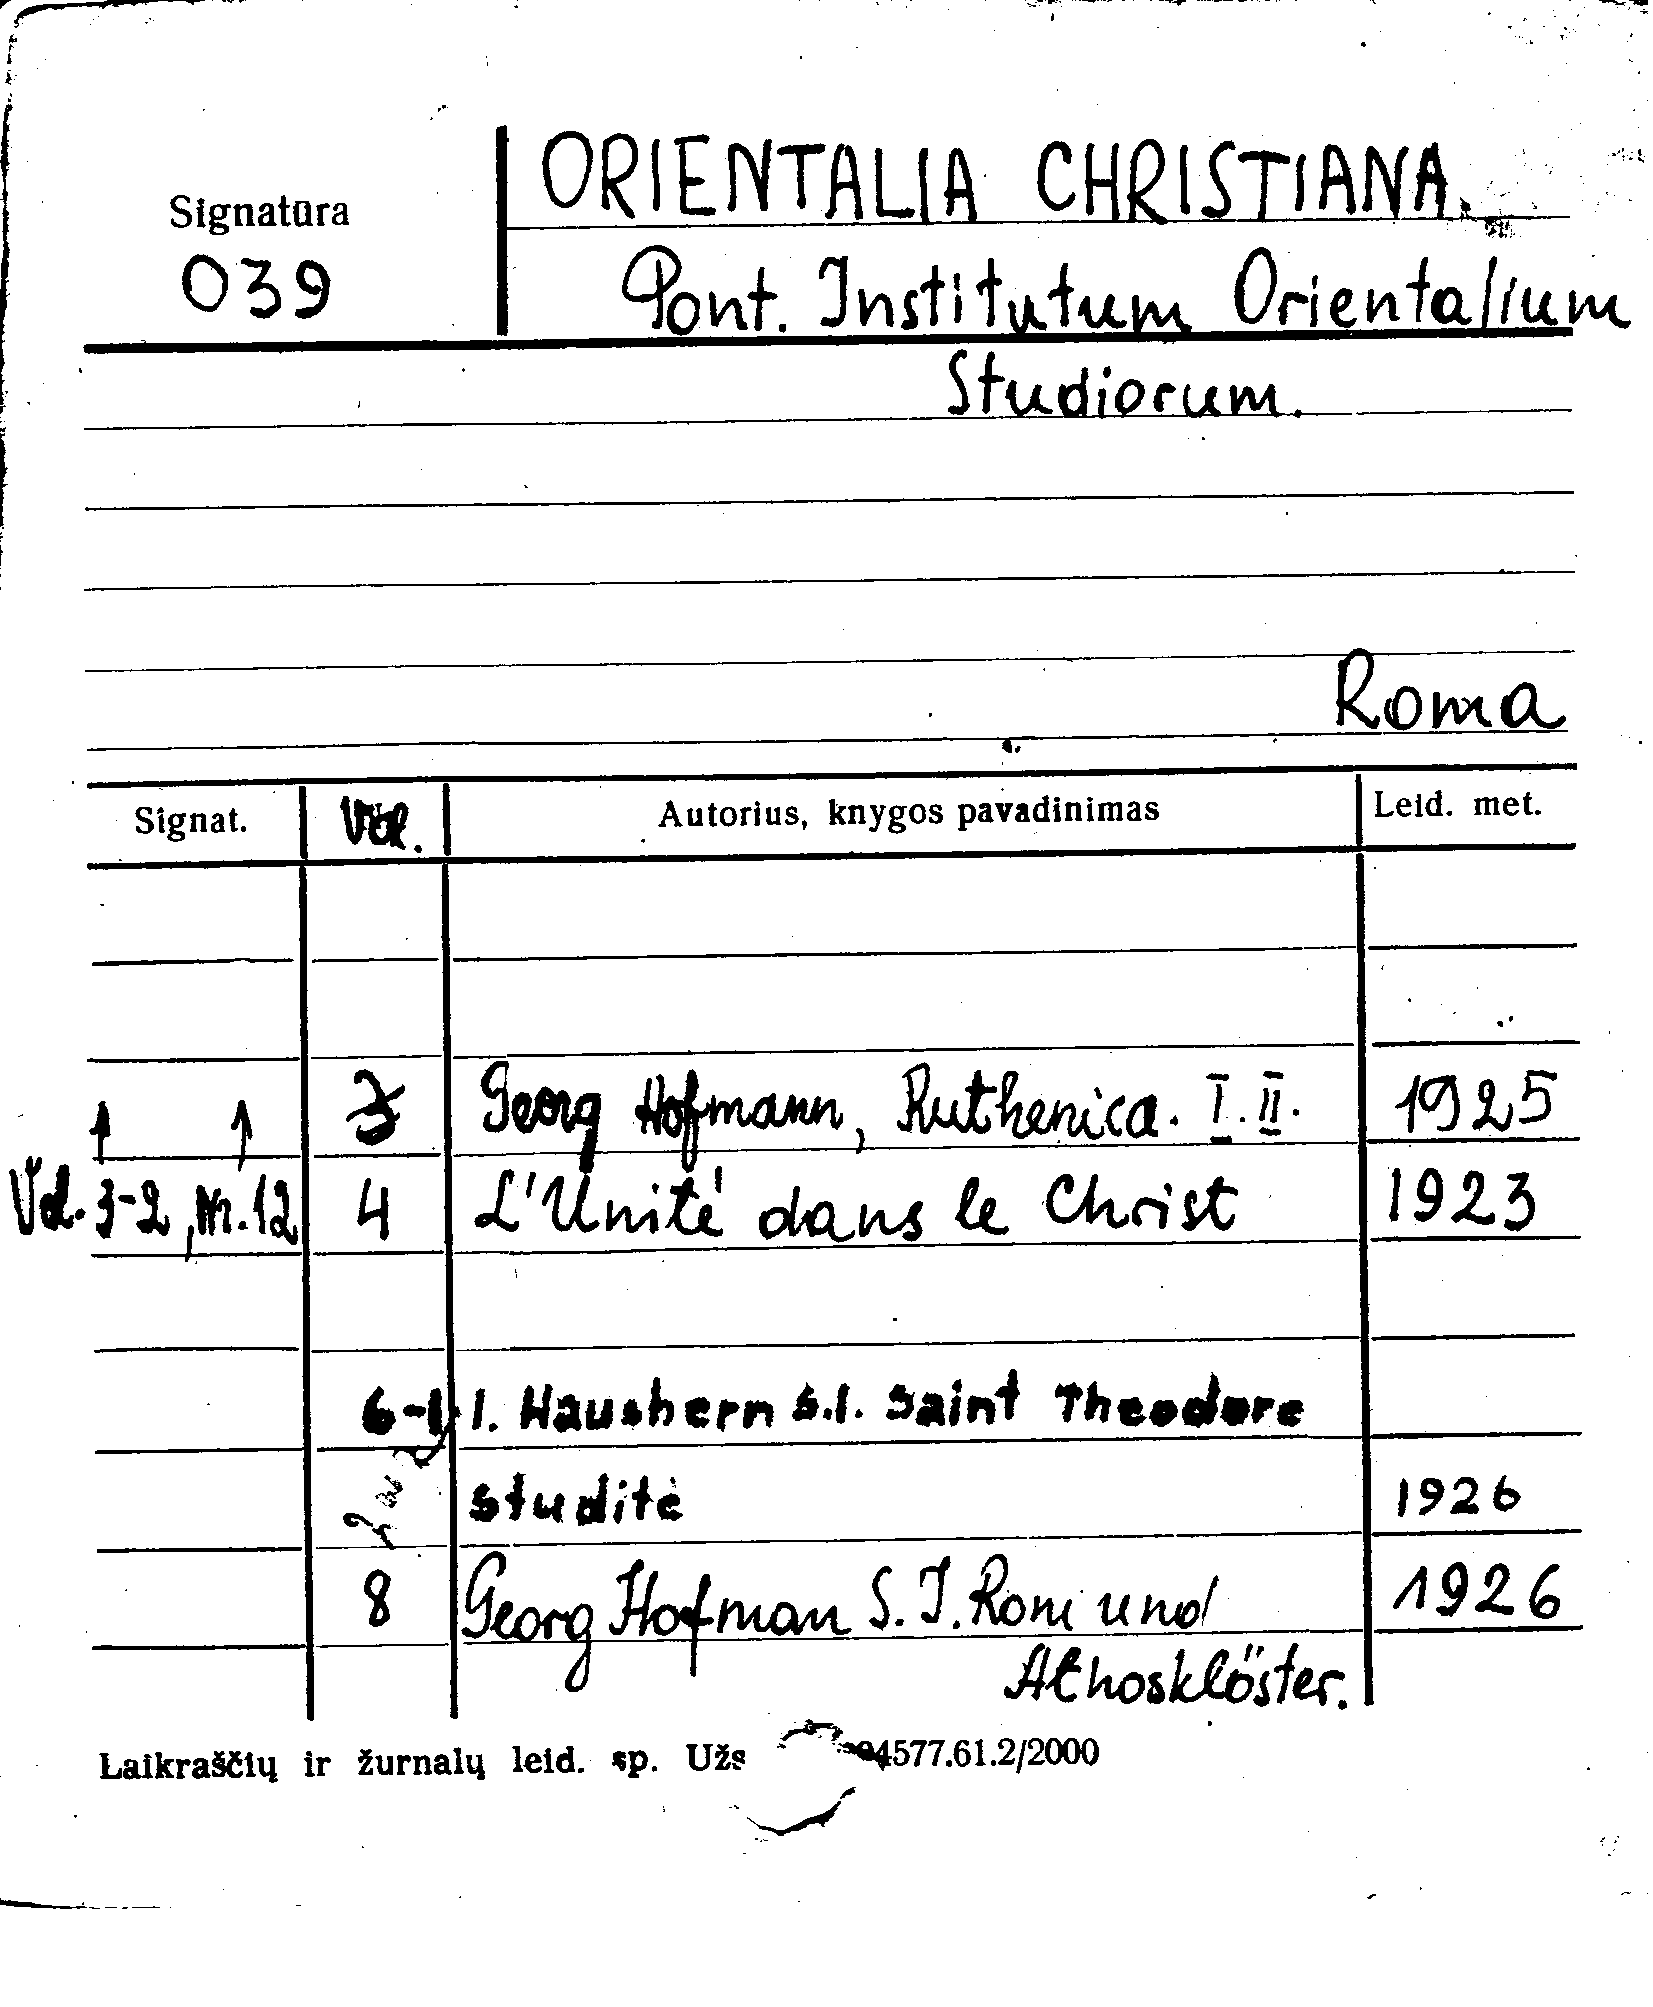 ORIENTALIA CHRISTIANA.
Signatūra
039
Pont. Institutum Orientalium
Studiorum.
Roma
Signat. Vol. Autorius, knygos pavadinimas Leid. met.
3 Georg Hofmann, Ruthenica. I. II. 1925
Vol. 3-2, Nr. 12 4 L'Unité dans le Christ 1923
6-1 I. Haushern S.I. Saint Theodore
studitė 1926
8 Georg Hofman S. J. Rom und 1926
Athosklöster.
Laikraščių ir žurnalų leid. sp. Užs 4577.61.2/2000